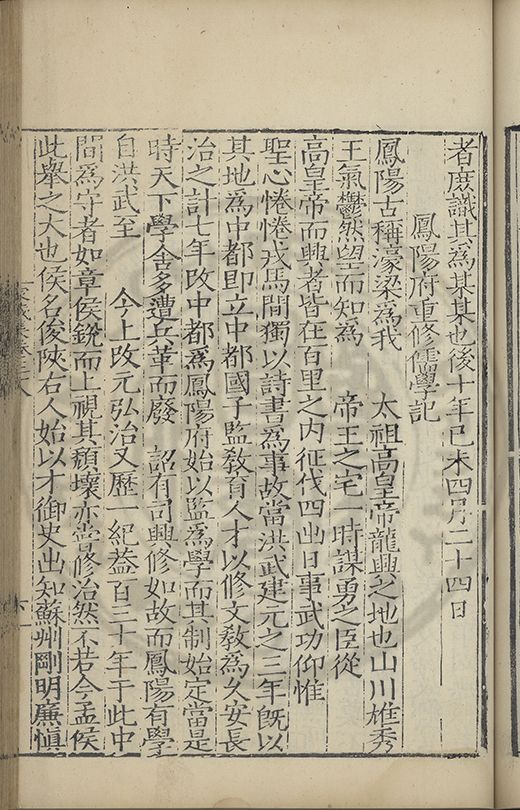 者庶識其為某某也後十年己未四月二十四日
鳳陽府重修儒學記
鳳陽古稱濠梁為我　　太祖高皇帝龍興之地也山川雄秀
王氣鬱然望而知為　　帝王之宅一時謀勇之臣從
高皇帝而興者皆在百里之內征伐四出日事武功仰惟
聖心惓惓戎馬間獨以詩書為事故當洪武建元之三年既以
其地為中都即立中都國子監教育人才以修文教為久安長
治之計七年改中都為鳳陽府始以監為學而其制始定當是
時天下學舍多遭兵革而廢　詔有司興修如故而鳳陽有學
自洪武至　　今上改元弘治又歷一紀葢百三十年于此中
間為守者如章侯銳而上視其頹壞亦嘗修治然不若今孟侯
此舉之大也侯名俊陝右人始以才御史出知蘇州剛明廉慎